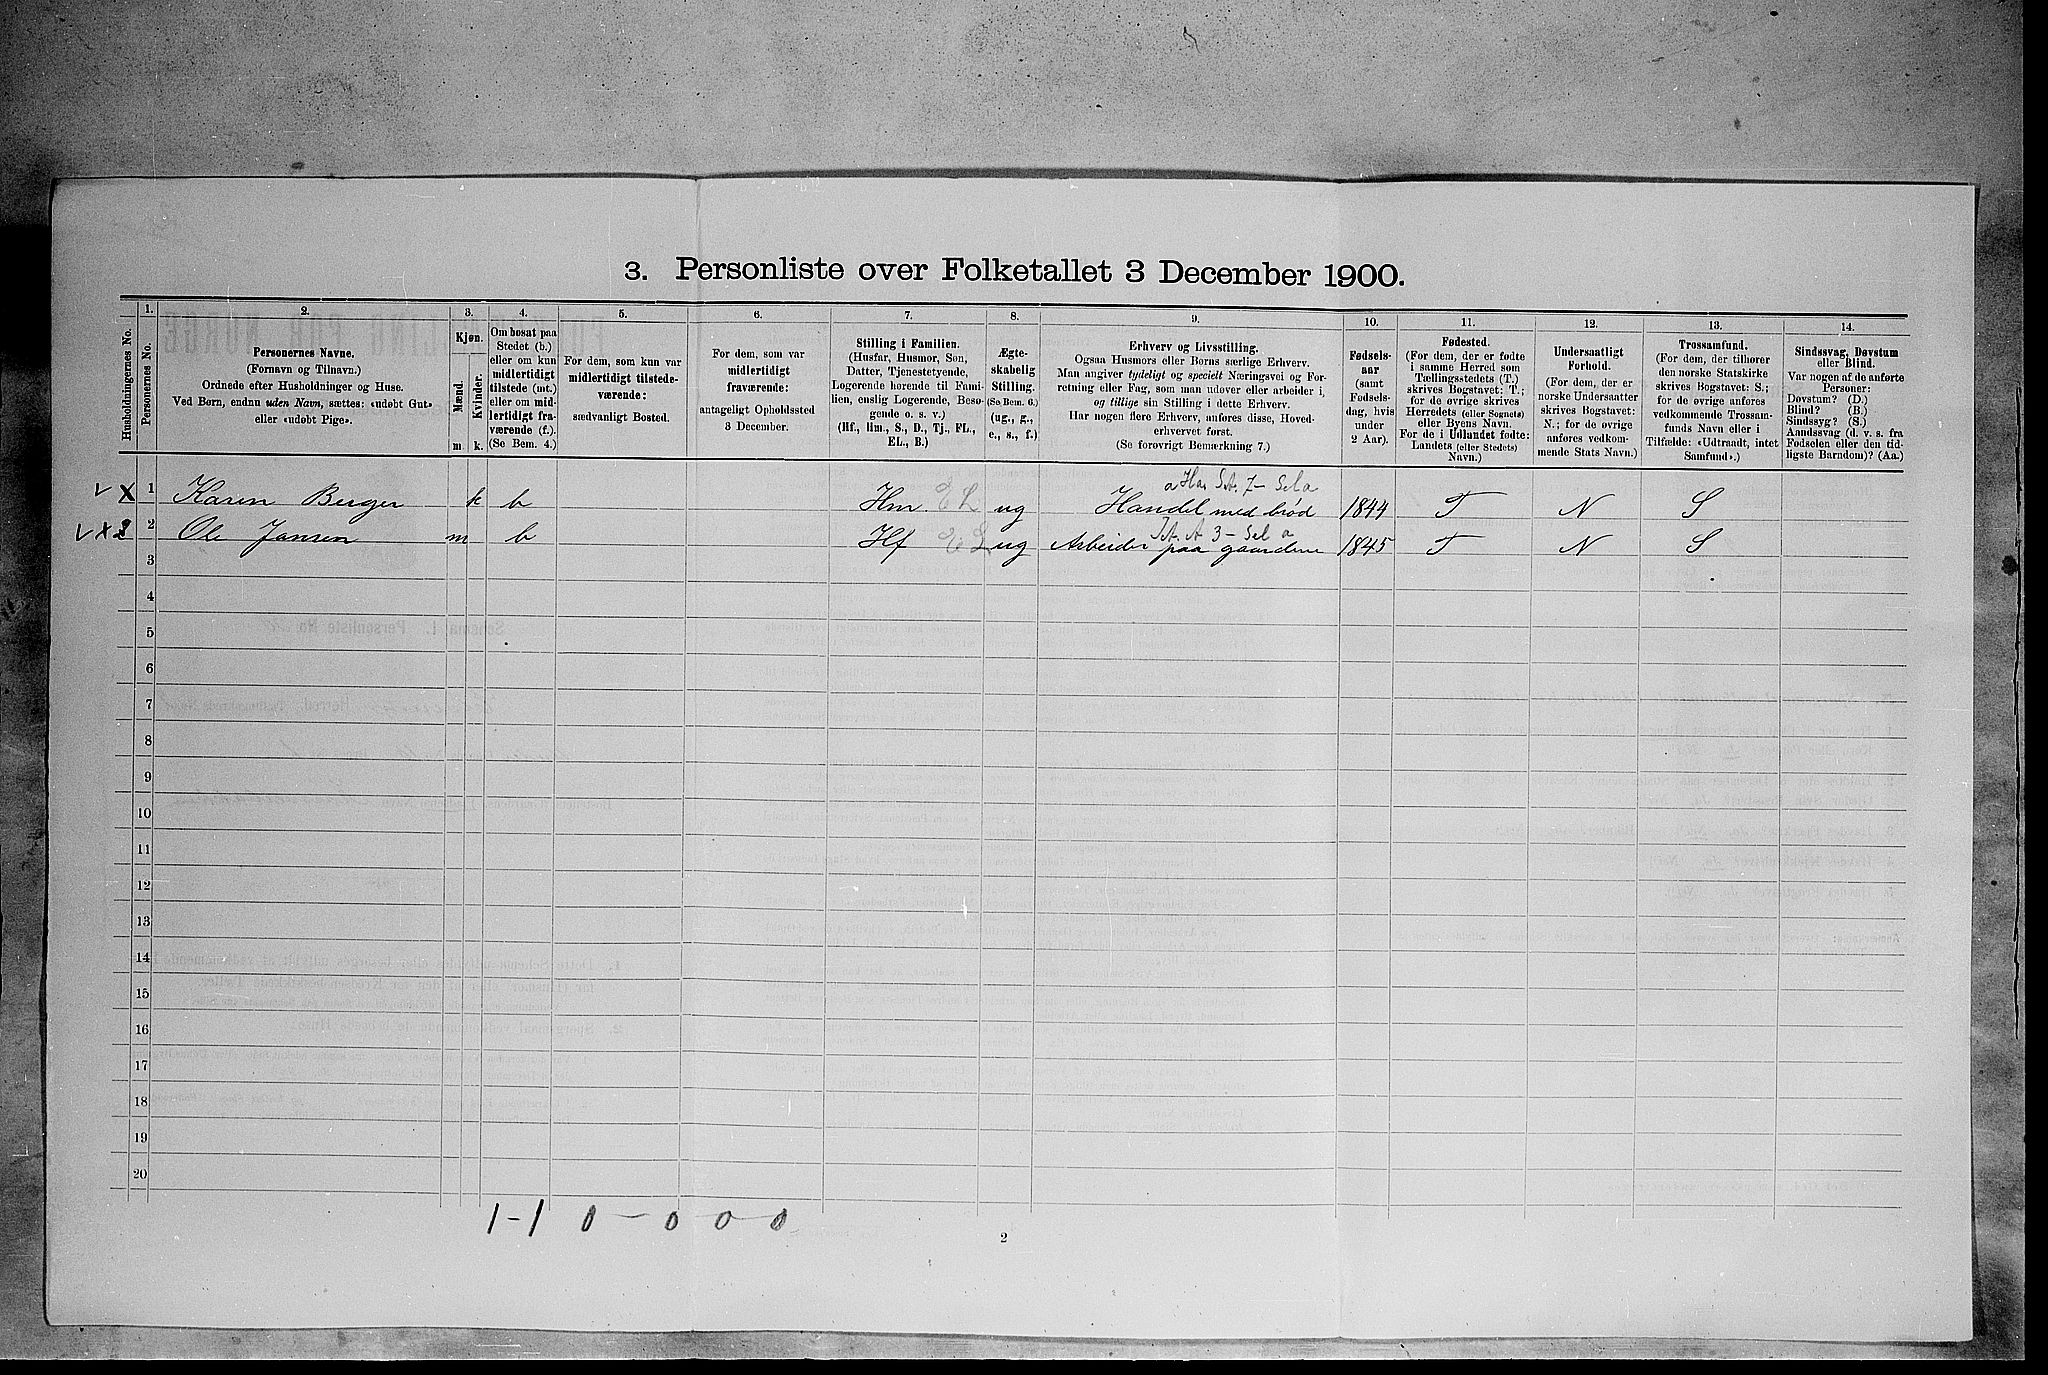 3. Personliste over Folketallet 3 December 1900.
Husholdningernes No.
1.
Personernes No.
2.
Personernes Navne.
(Fornavn og Tilnavn.)
Ordnede efter Husholdninger og Huse.
Ved Børn, endnu uden Navn, sættes: «udøbt Gut»
eller «udøbt Pige».
3.
Kjøn.
Mænd.
Kvinder.
m.
k.
4.
Om bosat paa
Stedet (b.)
eller om kun
midlertidigt
tilstede (mt.)
eller om mid-
lertidigt fra-
værende (f.).
(Se Bem. 4.)
5.
For dem, som kun var
midlertidigt tilstede-
værende:
sædvanligt Bosted.
6.
For dem, som var
midlertidigt
fraværende:
antageligt Opholdssted
3 December.
7.
Stilling i Familien.
(Husfar, Husmor, Søn,
Datter, Tjenestetyende,
Logerende hørende til Fami-
lien, enslig Logerende, Besø-
gende o. s. v.)
(Hf., Hm., S., D., Tj., FL.,
EL., B.)
8.
Ægte-
skabelig
Stilling.
(Se Bem. 6.)
(ug., g.,
e., s., f.)
9.
Erhverv og Livsstilling.
Ogsaa Husmors eller Børns særlige Erhverv.
Man angiver tydeligt og specielt Næringsvei og For-
retning eller Fag, som man udøver eller arbeider i,
og tillige sin Stilling i dette Erhverv.
Har nogen flere Erhverv, anføres disse, Hoved-
erhvervet først.
(Se forøvrigt Bemærkning 7.)
10.
Fødsels-
aar
(samt
Fødsels-
dag, hvis
under
2 Aar).
11.
Fødested.
(For dem, der er fødte
i samme Herred som
Tællingsstedets (T.)
skrives Bogstavet: T.;
for de øvrige skrives
Herredets (eller Sognets)
eller Byens Navn.
For de i Udlandet fødte:
Landets (eller Stedets)
Navn.)
12.
Undersaatligt
Forhold.
(For dem, der er
norske Undersaatter
skrives Bogstavet:
N.; for de øvrige
anføres vedkom-
mende Stats Navn.)
13.
Trossamfund.
(For dem, der tilhører
den norske Statskirke
skrives Bogstavet: S.;
for de øvrige anføres
vedkommende Trossam-
funds Navn eller i
Tilfælde: «Udtraadt, intet
Samfund».)
14.
Sindssvag, Døvstum
eller Blind.
Var nogen af de anførte
Personer:
Døvstum? (D.)
Blind? (B.)
Sindssyg? (S.)
Aandssvag (d. v. s. fra
Fødselen eller den tid-
ligste Barndom)? (Aa.)
1 Karen Berger k b Hm. EL ug Handel med brød 1844 T N S
2 Ole Jansen m b Hf EL ug Arbeider paa gaardene 1845 T N S
3
4
5
6
7
8
9
10
11
12
13
14
15
16
17
18
19
20
1-1 0-0 0 0
2